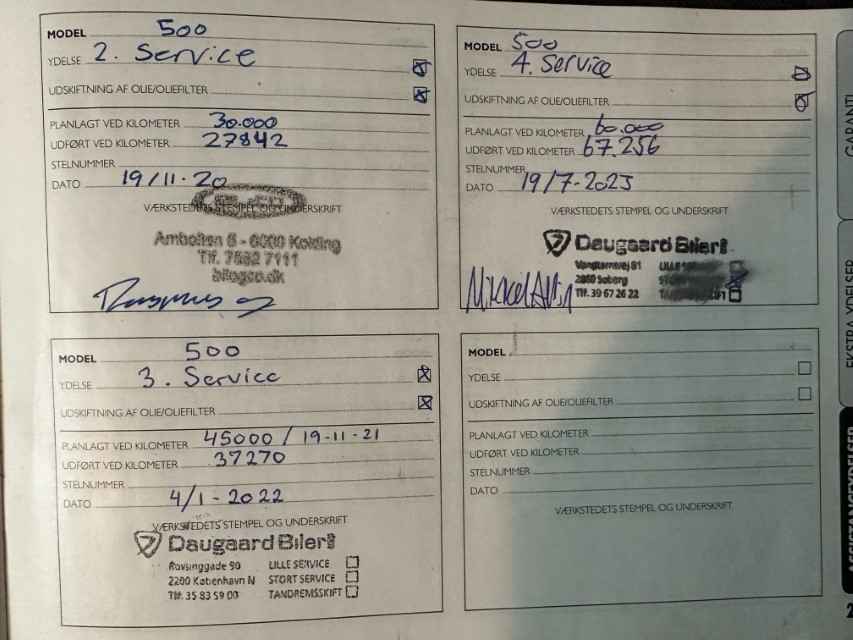 MODEL 500
YDELSE 2. Service
UDSKIFTNING AF OLIE/OLIEFILTER
PLANLAGT VED KILOMETER 30.000
UDFØRT VED KILOMETER 27842
STELNUMMER
DATO 19/11-20
VÆRKSTEDETS STEMPEL OG UNDERSKRIFT
Ambolten 6 - 6000 Kolding
Tlf. 7632 7111
bilogco.dk
MODEL 500
YDELSE 3. Service
UDSKIFTNING AF OLIE/OLIEFILTER
PLANLAGT VED KILOMETER 45000 / 19-11-21
UDFØRT VED KILOMETER 37270
STELNUMMER
DATO 4/1-2022
VÆRKSTEDETS STEMPEL OG UNDERSKRIFT
Daugaard Biler
Rovsinggade 90
2200 København N
Tlf. 35 83 59 00
LILLE SERVICE
STORT SERVICE
TANDREMSSKIFT
MODEL 500
YDELSE 4. Service
UDSKIFTNING AF OLIE/OLIEFILTER
PLANLAGT VED KILOMETER 60.000
UDFØRT VED KILOMETER 67.256
STELNUMMER
DATO 19/7-2023
VÆRKSTEDETS STEMPEL OG UNDERSKRIFT
Daugaard Biler
Vangtarnsvej 81
2860 Søborg
Tlf. 39 67 26 22
MODEL
YDELSE
UDSKIFTNING AF OLIE/OLIEFILTER
PLANLAGT VED KILOMETER
UDFØRT VED KILOMETER
STELNUMMER
DATO
VÆRKSTEDETS STEMPEL OG UNDERSKRIFT
GARANTI
EKSTRA YDELSER
ASSISTANCEYDELSER
2